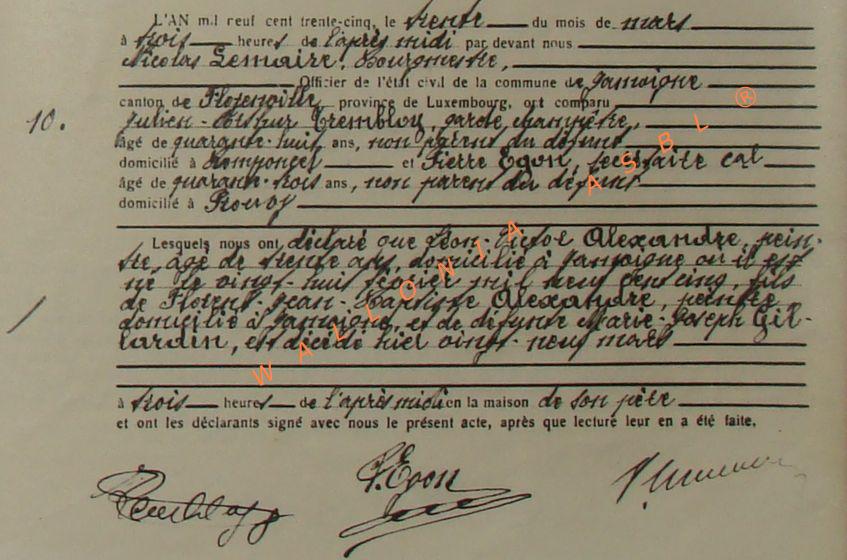 L'AN mil neuf cent trente-cinq, le trente du mois de mars
à trois heures de l'après midi par devant nous
Nicolas Lemaire, Bourgmestre,
Officier de l'état civil de la commune de Jamoigne
canton de Florenville province de Luxembourg, ont comparu
10.
Julien-Arthur Trembloy, garde champêtre,
âgé de quarante-huit ans, non parent du défunt
domicilié à et Pierre Egon, secrétaire cal
âgé de quarante-trois ans, non parent du défunt
domicilié à
Lesquels nous ont déclaré que Léon-Victor Alexandre, pein-
tre, âgé de trente ans, domicilié à Jamoigne où il est
né le vingt-huit février mil neuf cent cinq, fils
de Florent-Jean-Baptiste Alexandre, peintre
domicilié à Jamoigne, et de défunte Marie-Joseph Gil-
lardin, est décédé hier vingt-neuf mars
à trois heures de l'après midi en la maison de son père
et ont les déclarants signé avec nous le présent acte, après que lecture leur en a été faite.
P. Egon
WALLONIA ASBL ®